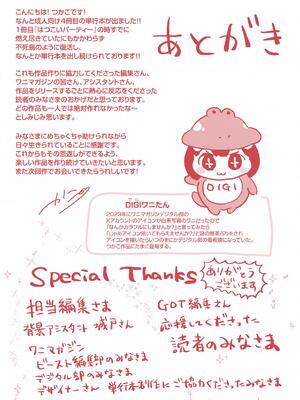 あとがき
こんにちは!つかこです!
なんと成人向け4冊目の単行本が出ました!!
1冊目『はつこいパーティー』の時すでに
燃え尽きていたにもかかわらず
不死鳥のように復活し、
なんとか単行本を出し続けられております!!
これも作品作りに協力してくださった編集さん、
ワニマガジンの皆さん、アシスタントさん、
作品をリリースするごとに熱心に反応をくださった
読者のみなさまのおかげだと思っております。
どの作品も一人では絶対作れなかったな~
としみじみ思います。
みなさまにめちゃくちゃ助けられながら
日々生きられていることに感謝です。
これからもその恩返しができるよう、
楽しい作品を作り続けていきたいと思います。
また次回作でお会いできたらうれしいです!
DIGI
DIGIワニたん
2023年にワニマガジンデジタル部の
Xアカウントのアイコンが白茶写真のワニだったので
「なんかカラフルにしませんか?」と言ってみたら
「じゃあアイコン描いてもらえませんか?」と謎の無茶ぶりをされ
アイコンを描いたらいつのまにかデジタル部の看板娘になっていた。
つかこ作品にたまに登場する。
Special Thanks
ありがとうございます
担当編集さま
背景アシスタント 城戸さん
ワニマガジン
ビースト編集部のみなさま
デジタル部のみなさま
デザイナーさん
GOT編集さん
応援してくださった
読者のみなさま
単行本制作にご協力くださったみなさま